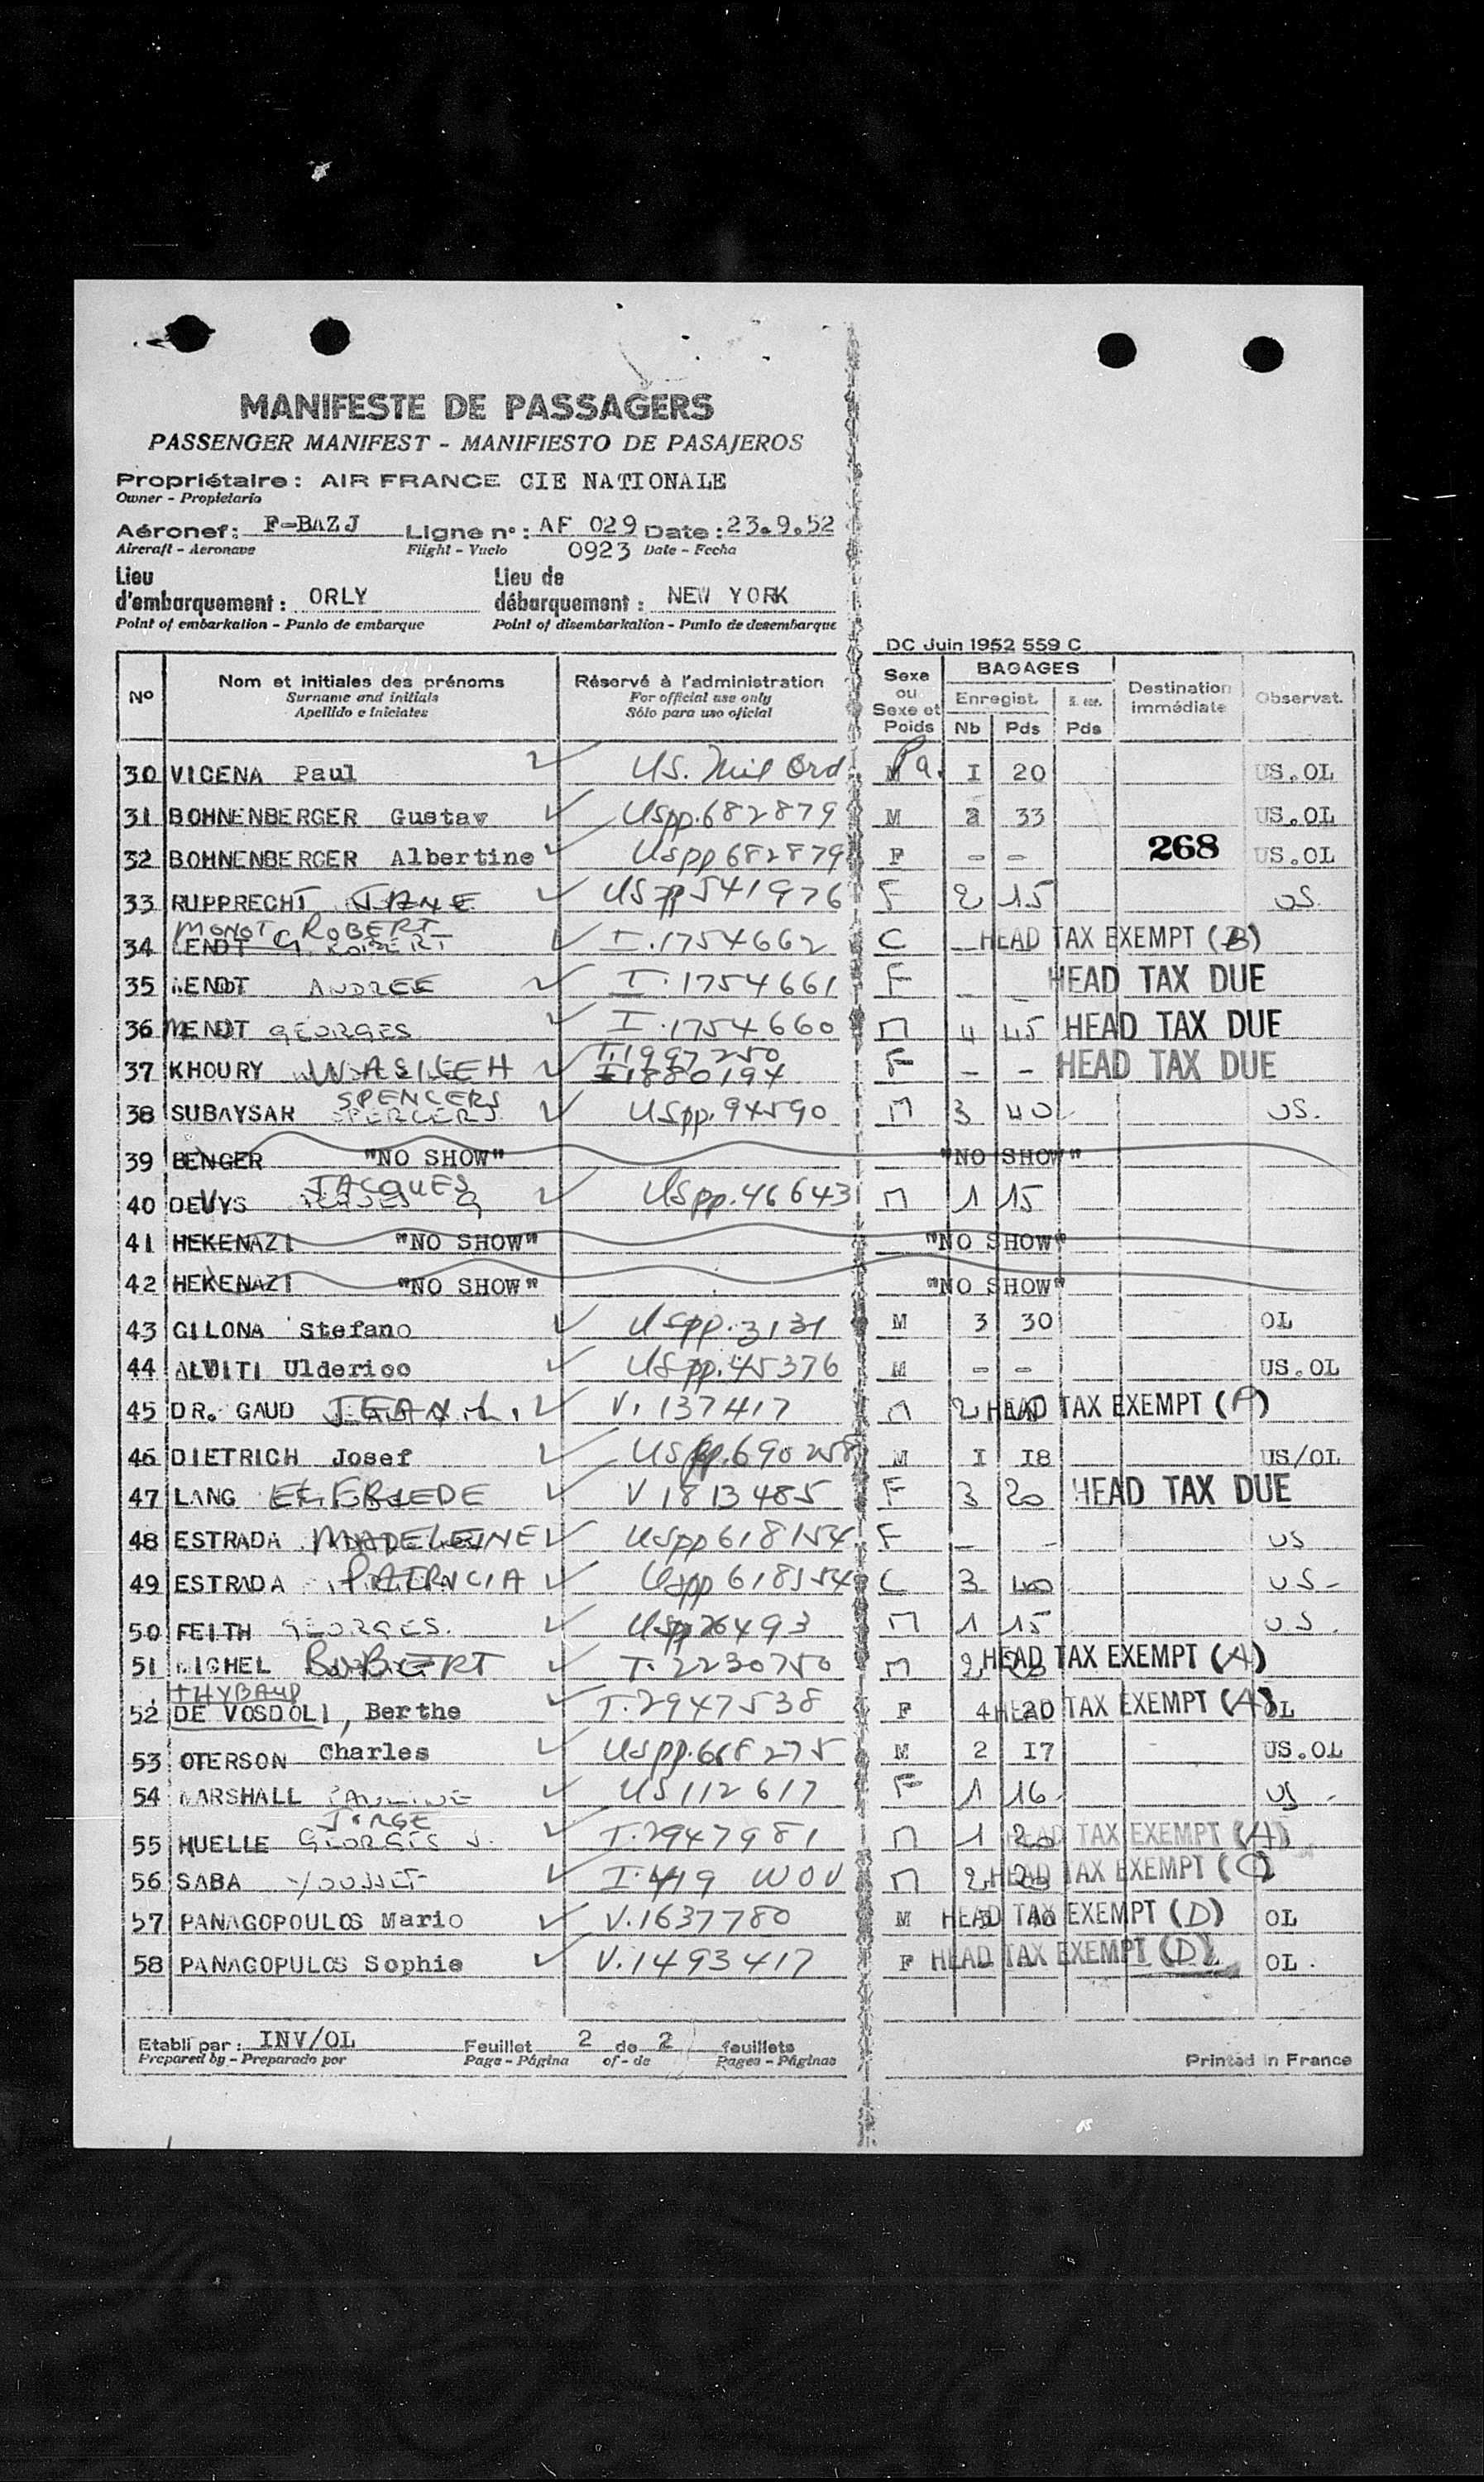 MANIFESTE DE PASSAGERS
PASSENGER MANIFEST - MANIFIESTO DE PASAJEROS
Propriétaire: AIR FRANCE CIE NATIONALE
Owner - Propietario
Aéronef: F-BAZJ Ligne n°: AF 029 Date: 23.9.52
Aircraft - Aeronave Flight - Vuelo 0923 Date - Fecha
Lieu d'embarquement: ORLY Lieu de débarquement: NEW YORK
Point of embarkation - Punto de embarque Point of disembarkation - Punto de desembarque
DC Juin 1952 559 C
No Nom et initiales des prénoms Réservé à l'administration Sexe ou Sexe et Poids BAGAGES Destination immédiate Observat.
Surname and initials For official use only Enregist.
Apellido e iniciales Sólo para uso oficial Nb Pds Pds
30 VICENA Paul US. Mil Ord. M Pa. I 20 US.OL
31 BOHNENBERGER Gustav USpp.682879 M 2 33 US.OL
32 BOHNENBERGER Albertine USpp 682879 F - - 268 US.OL
33 RUPPRECHT JANE US pp 541976 F 2 15 US.
MONOT G ROBERT
34 I.1754662 C - HEAD TAX EXEMPT (B)
35 MENDT ANDREE I.1754661 F - - HEAD TAX DUE
36 MENDT GEORGES I.1754660 M 4 45 HEAD TAX DUE
T.1997250
37 KHOURY WASILEH I1880194 F - - HEAD TAX DUE
SPENCERS
38 SUBAYSAR USpp.94590 M 3 40 US.
39 BENGER "NO SHOW" "NO SHOW"
JACQUES
40 DEVYS USpp.46643 M 1 15
41 HEKENAZI "NO SHOW" "NO SHOW"
42 HEKENAZI "NO SHOW" "NO SHOW"
43 GILONA Stefano USpp.3131 M 3 30 OL
44 ALVITI Ulderico USpp.45376 M - - US.OL
45 DR. GAUD JEAN.L. V. 137417 M 2 HEAD TAX EXEMPT (A)
46 DIETRICH Josef USpp.690258 M I 18 US/OL
47 LANG V 1813485 F 3 20 HEAD TAX DUE
48 ESTRADA MADELEINE USpp 618154 F - - US
49 ESTRADA PATRICIA USpp 618154 C 3 40 US-
50 FEITH GEORGES. USpp 26493 M 1 15 US.
51 MICHEL ROBERT T. 2230750 M 2 HEAD TAX EXEMPT (A)
THYBAUD
52 DE VOSDOLI, Berthe T.2947538 F 4 20 HEAD TAX EXEMPT (A) OL
53 OTERSON Charles USpp.668275 M 2 17 US.OL
54 MARSHALL PAULINE US112617 F 1 16 US -
JORGE
55 HUELLE GEORGES J. T.2947981 M 1 20 HEAD TAX EXEMPT (A)
56 SABA YOUSSEF I.419 WOV M 2 20 HEAD TAX EXEMPT (C)
57 PANAGOPOULOS Mario V.1637780 M HEAD TAX EXEMPT (D) OL
58 PANAGOPULOS Sophie V.1493417 F HEAD TAX EXEMPT (D) OL.
Etabli par: INV/OL Feuillet 2 de 2 feuillets
Prepared by - Preparado por Page - Página of - de Pages - Páginas Printed in France